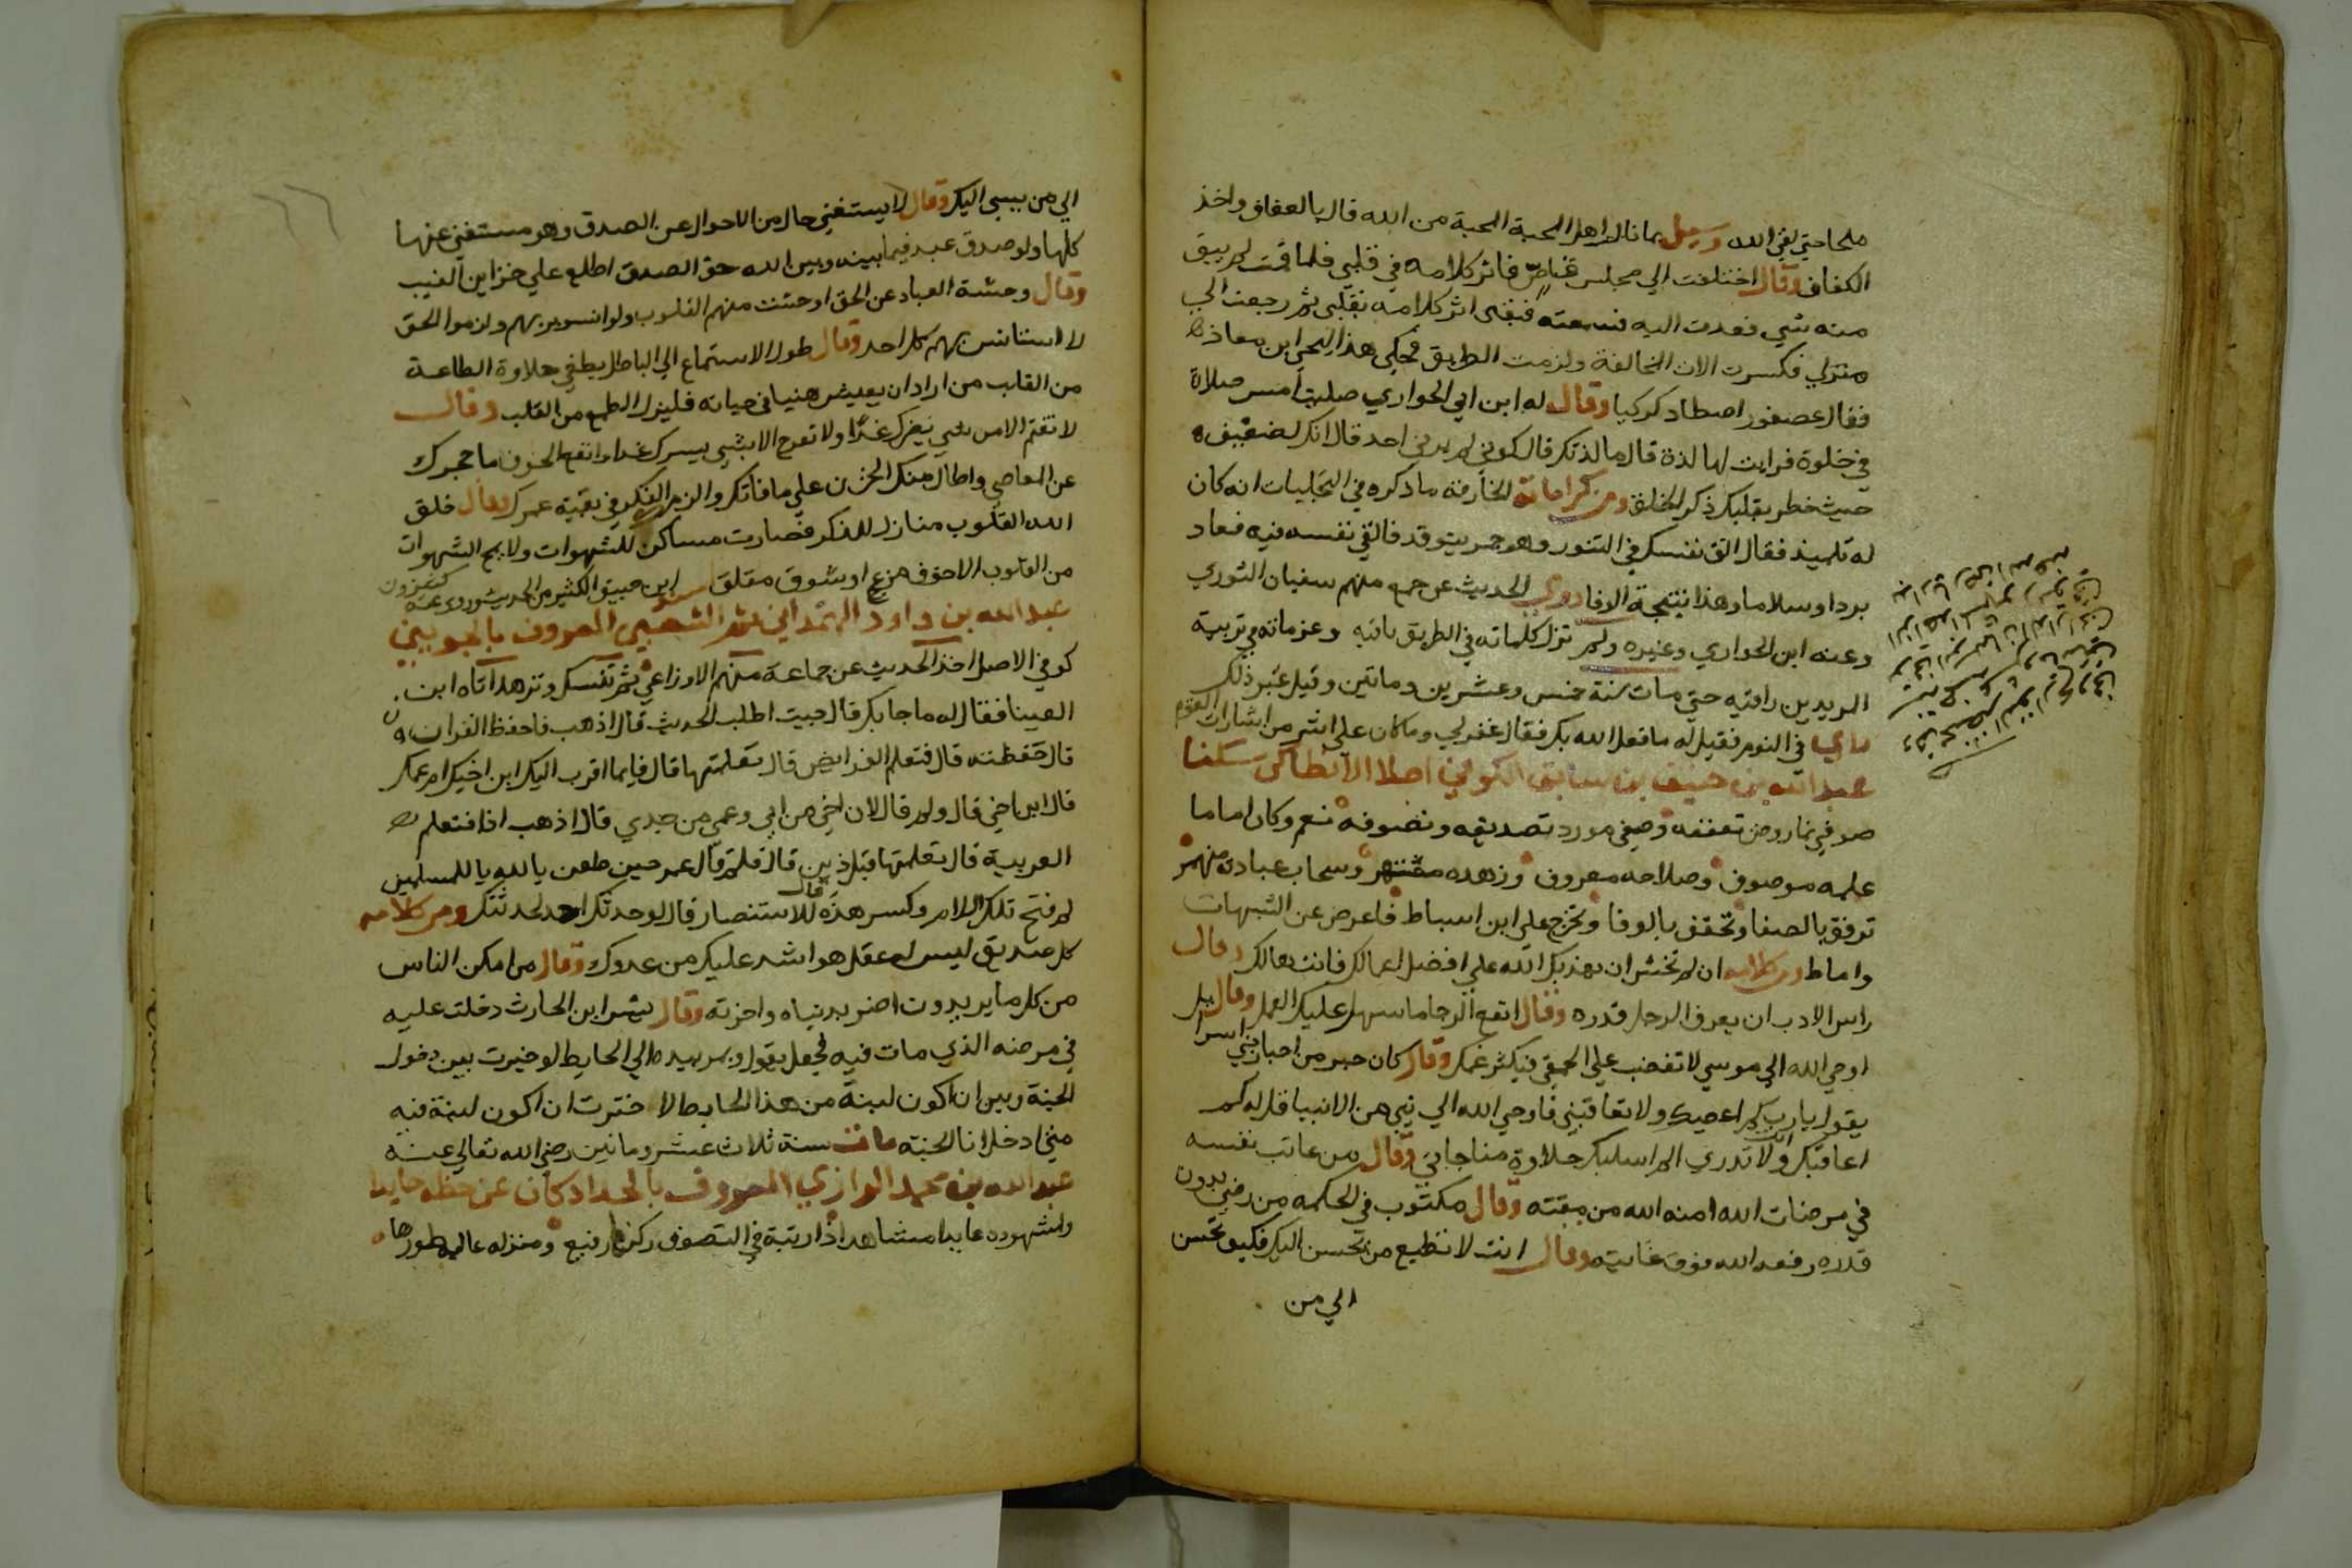 ملحا حتي لقي الله وسيل بما نال اهل المحبة المحبة من الله قال بالعفاف واخذ
الكفاف وقال اختلفت الي مجلس قاص فاثر كلامه في قلبي فلما قمت لم يبق
منه شي فعدت اليه فسمعته فبقي اثر كلامه بقلبي ثم رجعت الي
منزلي فكسرت الات المخالفة ولزمت الطريق فحكي هذا ليحيي ابن معاذ
فقال عصفور اصطاد كركيا وقال له ابن ابي الحواري صليت امس صلاة
في خلوة فرايت لها لذة قال ما لذتك قال كوني لم يرني احد قال انك لضعيف
حيث خطر بقلبك ذكر الخلق ومن كراماته الخارقة ما ذكره في التجليات انه كان
له تلميذ فقال الق نفسك في التنور وهو جمر يتوقد فالقي نفسه فيه فعاد
بردا وسلاما وهذا نتيجة الوفا روي الحديث عن جمع منهم سفيان الثوري
وعنه ابن الحواري وغيره ولم تزل كلماته في الطريق باقيه وعزماته في تربية
المريدين راقيه حتي مات سنة خمس وعشرين وماتين وقيل غير ذلك
راي في النوم فقيل له ما فعل الله بك فقال غفر لي وما كان علي اشر من اشارات القوم
عبد الله بن خبيق بن سابق الكوفي اصلا الانطاكي سكنا
صوفي نما روض تعففه وصفي مورد تصديقه وتصوفه نعم وكان اماما
علمه موصوف وصلاحه معروف وزهده مشتهر وسحاب عبادته منهمر
توفق بالصفا وتحقق بالوفا وتخرج علي ابن اسباط فاعرض عن الشبهات
واماط ومن كلامه ان لم تخش ان يعذبك الله علي افضل اعمالك فانت هالك وقال
راس الادب ان يعرف الرجل قدره وقال انفع الرجا ما سهل عليك العمل وقال
اوحي الله الي موسي لا تغضب علي الحمقي فيكثر غمك وقال كان حبر من احبار بني اسرا
يقول يارب كم اعصيك ولا تعاقبني فاوحي الله الي نبي من الانبيا قل له كم
اعاقبك ولا تدري الم اسلبك حلاوة مناجاتي وقال من عاتب نفسه
في مرضات الله امنه الله من مقته وقال مكتوب في الحكمه من رضي بدون
قدره رفعه الله فوق غايته وقال انت لا تطيع من يحسن اليك فكيف تحسن
الي من
الي من يسي اليك وقال لا يستغني حال من الاحوال عن الصدق وهو مستغني عنها
كلها ولو صدق عبد فيما بينه وبين الله حق الصدق اطلع علي خزاين الغيب
وقال وحشة العباد عن الحق اوحشت منهم القلوب ولو انسوا بربهم ولزموا الحق
لاستانس بهم كل احد وقال طول الاستماع الي الباطل يطفي حلاوة الطاعة
من القلب من اراد ان يعيش هنيا في حياته فليزل الطمع من القلب وقال
لا تغتم الا من شي يضرك غدا ولا تفرح الا بشي يسرك غدا وانفع الخوف ما حجزك
عن المعاصي واطال منك الحزن علي ما فاتك والزمك الفكر في بقية عمرك وقال خلق
الله القلوب منازل للذكر فصارت مساكن للشهوات ولا يمح الشهوات
من القلوب الا خوف مزعج او شوق مقلق اسند ابن خبيق الكثير من الحديث وروي عنه كثيرون
عبد الله بن داود الهمداني ثم الشعبي المعروف بالخوبيني
كوفي الاصل اخذ الحديث عن جماعة منهم الاوزاعي ثم تنسك وتزهد اتاه ابن
العينا فقال له ما جا بك قال جيت اطلب الحديث قال اذهب فاحفظ القران
قال حفظته قال فتعلم الفرايض قال تعلمتها قال فايما اقرب اليك ابن اخيك ام عمك
قال ابن اخي قال ولم قال لان اخي من ابي وعمي من جدي قال اذهب اذا فتعلم
العربية قال تعلمتها قبل ذين قال فلم قال عمر حين طعن يا لله يا للمسلمين
لم فتح تلك اللام وكسر هذه قال للاستنصار قال لو حدثت احد لحدثتك ومن كلامه
كل صديق ليس له عقل هو اشد عليك من عدوك وقال من امكن الناس
من كل ما يريدون اضر بدنياه واخرته وقال بشر ابن الحارث دخلت عليه
في مرضه الذي مات فيه فجعل يقول ويمر يده الي الحايط لو خيرت بين دخول
الجنة وبين ان اكون لبنة من هذا الحايط لاخترت ان اكون لبنة فيه
متي ادخل انا الجنه مات سنة ثلاث عشر وماتين رضي الله تعالي عنه
عبد الله بن محمد الرازي المعروف بالحداد كان عن حظه حايدا
ولشهوده عابدا مشاهدا ذا رتبة في التصوف ركنها رفيع ومنزله عالية طورها